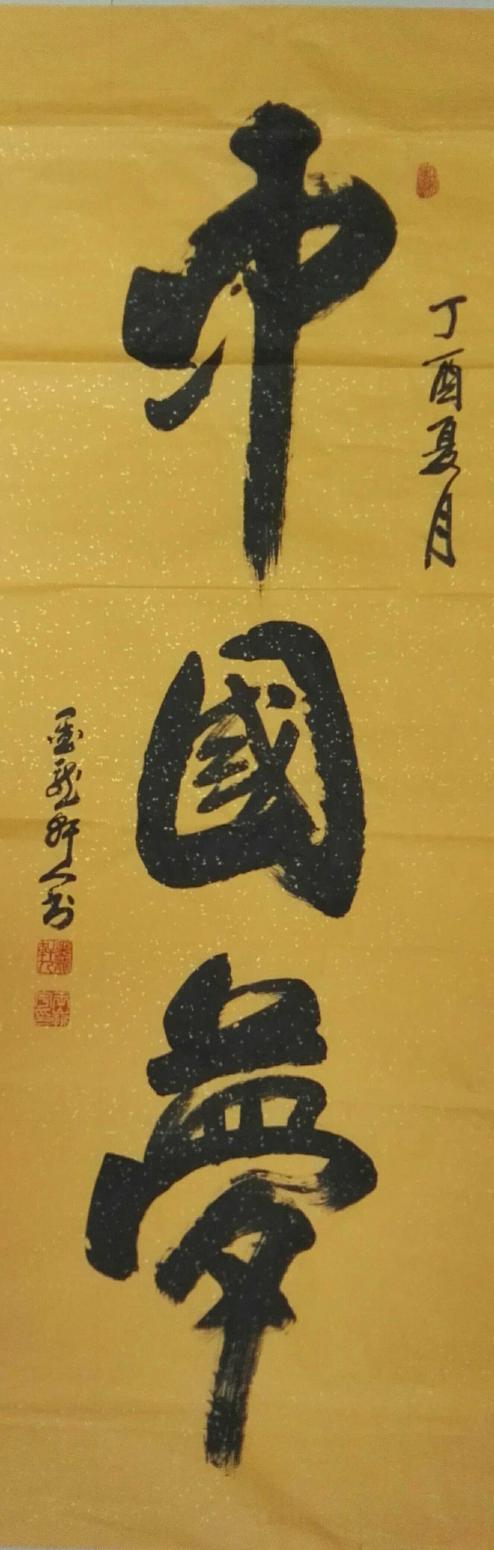 丁酉夏月
中國夢
龍軒人书